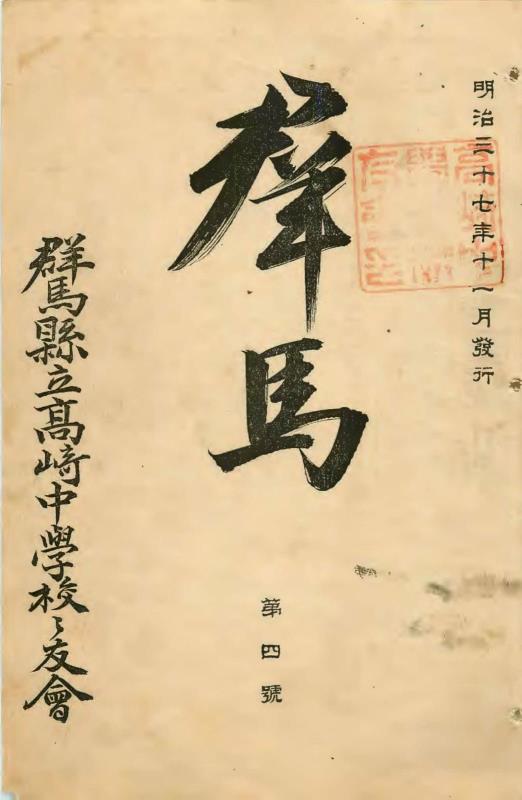 明治三十七年十一月發行
群馬
第四號
群馬縣立髙崎中學校々友會